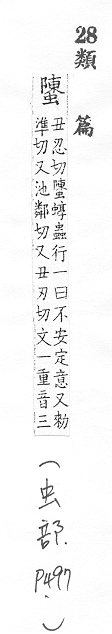 28類篇
螴
丑忍切螴蜳蟲行一曰不安定意又勑
準切又池鄰切又丑刃切文一重音三
(虫部. P497.)